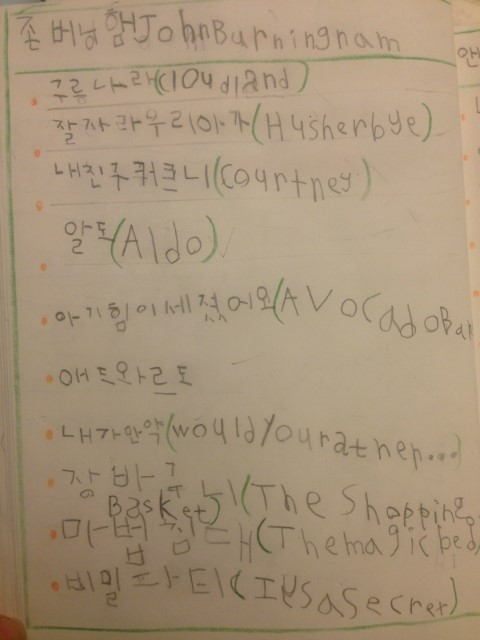 존 버닝햄 JohnBurningnam
구름 나라(Cloudland)
잘자라우리아가(Husherbye)
내친구커트니(Courtney)
알도(Aldo)
아기힘이세졌어요(AVocadoBa
애드와르도
내가만약(wouldYourather...)
장바구니(The Shopping
Basket)
마법침대(Themagicbed
비밀파티(It'sasecret)